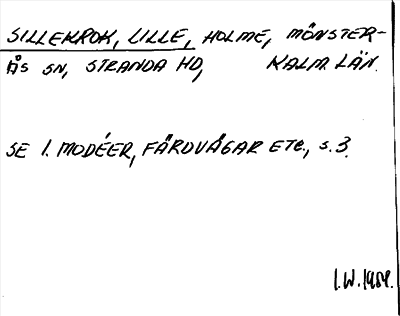 SILLEKROK, LILLE, HOLME, MÖNSTER-
ÅS SN, STRANDA HD, KALM. LÄN.
SE I. MODÉER, FÄRDVÄGAR ETC., S. 3.
I.W. 1984.